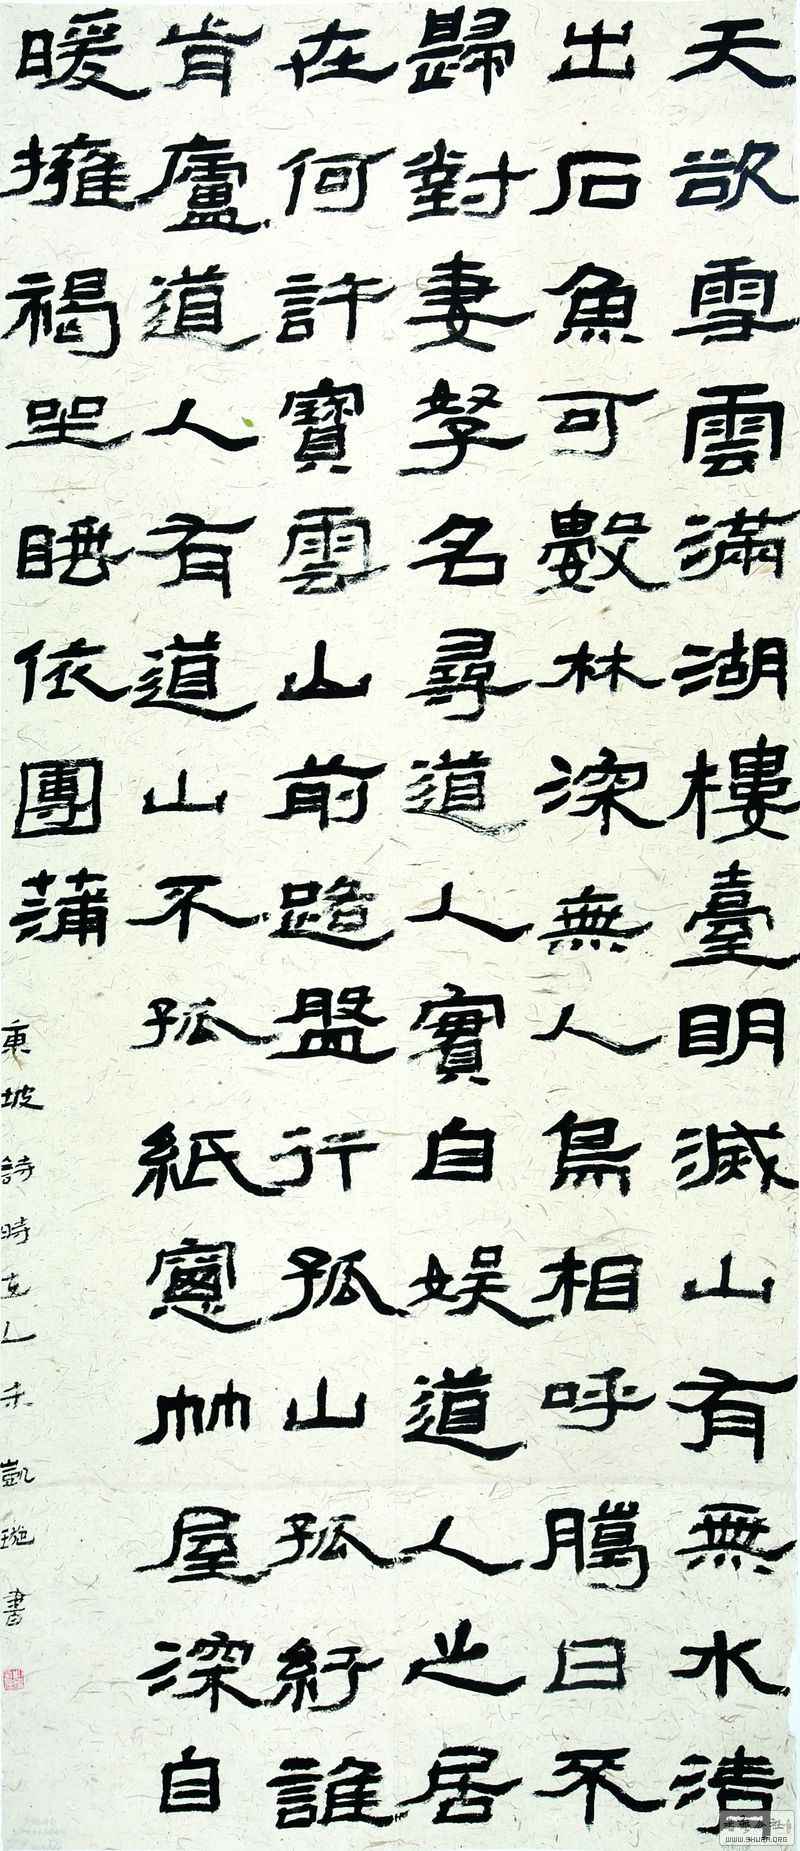 天欲雪雲滿湖樓臺明滅山有無水清
出石魚可數林深無人鳥相呼臈日不
歸對妻孥名尋道人實自娛道人之居
在何許寶雲山前路盤行孤山孤紆誰
肯廬道人有道山不孤紙窻竹屋深自
暖擁褐坐睡依團蒲
東坡詩時在乙未凱璇書
WWW.SHUFA.ORG